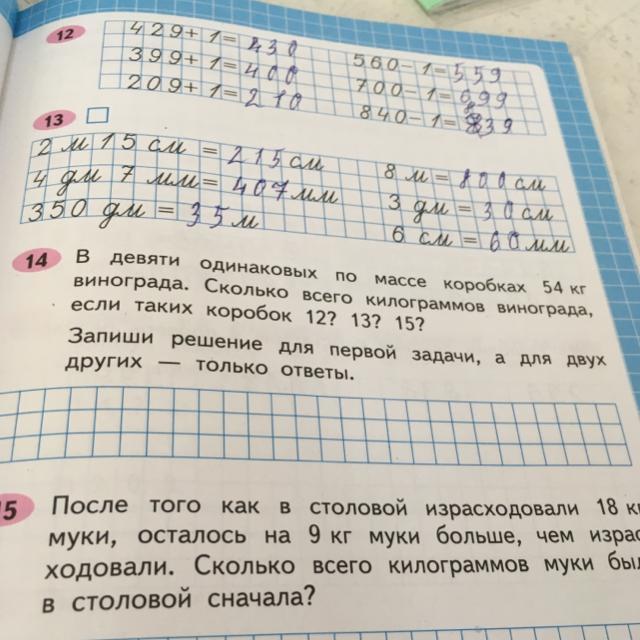 12
429+1=430
399+1=400
209+1=210
560-1=559
700-1=699
840-1=839
13
2 м 15 см = 215 см
4 дм 7 мм = 407 мм
350 дм = 35 м
8 м = 800 см
3 дм = 30 см
6 см = 60 мм
14 В девяти одинаковых по массе коробках 54 кг
винограда. Сколько всего килограммов винограда,
если таких коробок 12? 13? 15?
Запиши решение для первой задачи, а для двух
других — только ответы.
15 После того как в столовой израсходовали 18 кг
муки, осталось на 9 кг муки больше, чем израс-
ходовали. Сколько всего килограммов муки был
в столовой сначала?